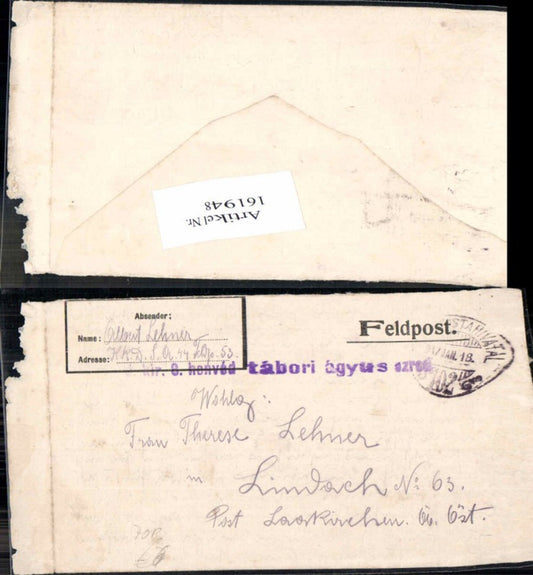 Artikel Nr.
161948
Absender:
Name: Albert Lehner
Adresse:
Feldpost.
kir. 9. honvéd tábori ágyus ezred
Frau Therese Lehner
in
Lindach No 63.
Post Laakirchen. Ob. Öst.